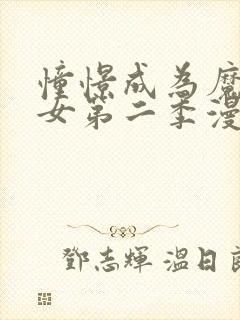 憧憬成為魔
女第二季漫
鄧志輝 溫日良